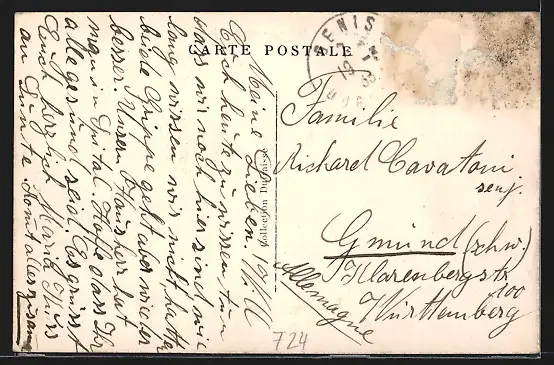 CARTE POSTALE
Meine Lieben! 19/I
Euch heute zu wissen tun
dass wir noch hier sind wie
lang wissen wir nicht, hatte
beide Grippe geht aber wieder
besser. Unser Hausherr hat
man in Spital. Hoffe dass Ihr
alle gesund seid. Es grüsst
Euch herzlich Maria
au Tante
Collection
Familie
Richard Cavatoni
senj.
Gmünd (schw.)
Klarenbergstr
100
Württemberg
Allemagne
724